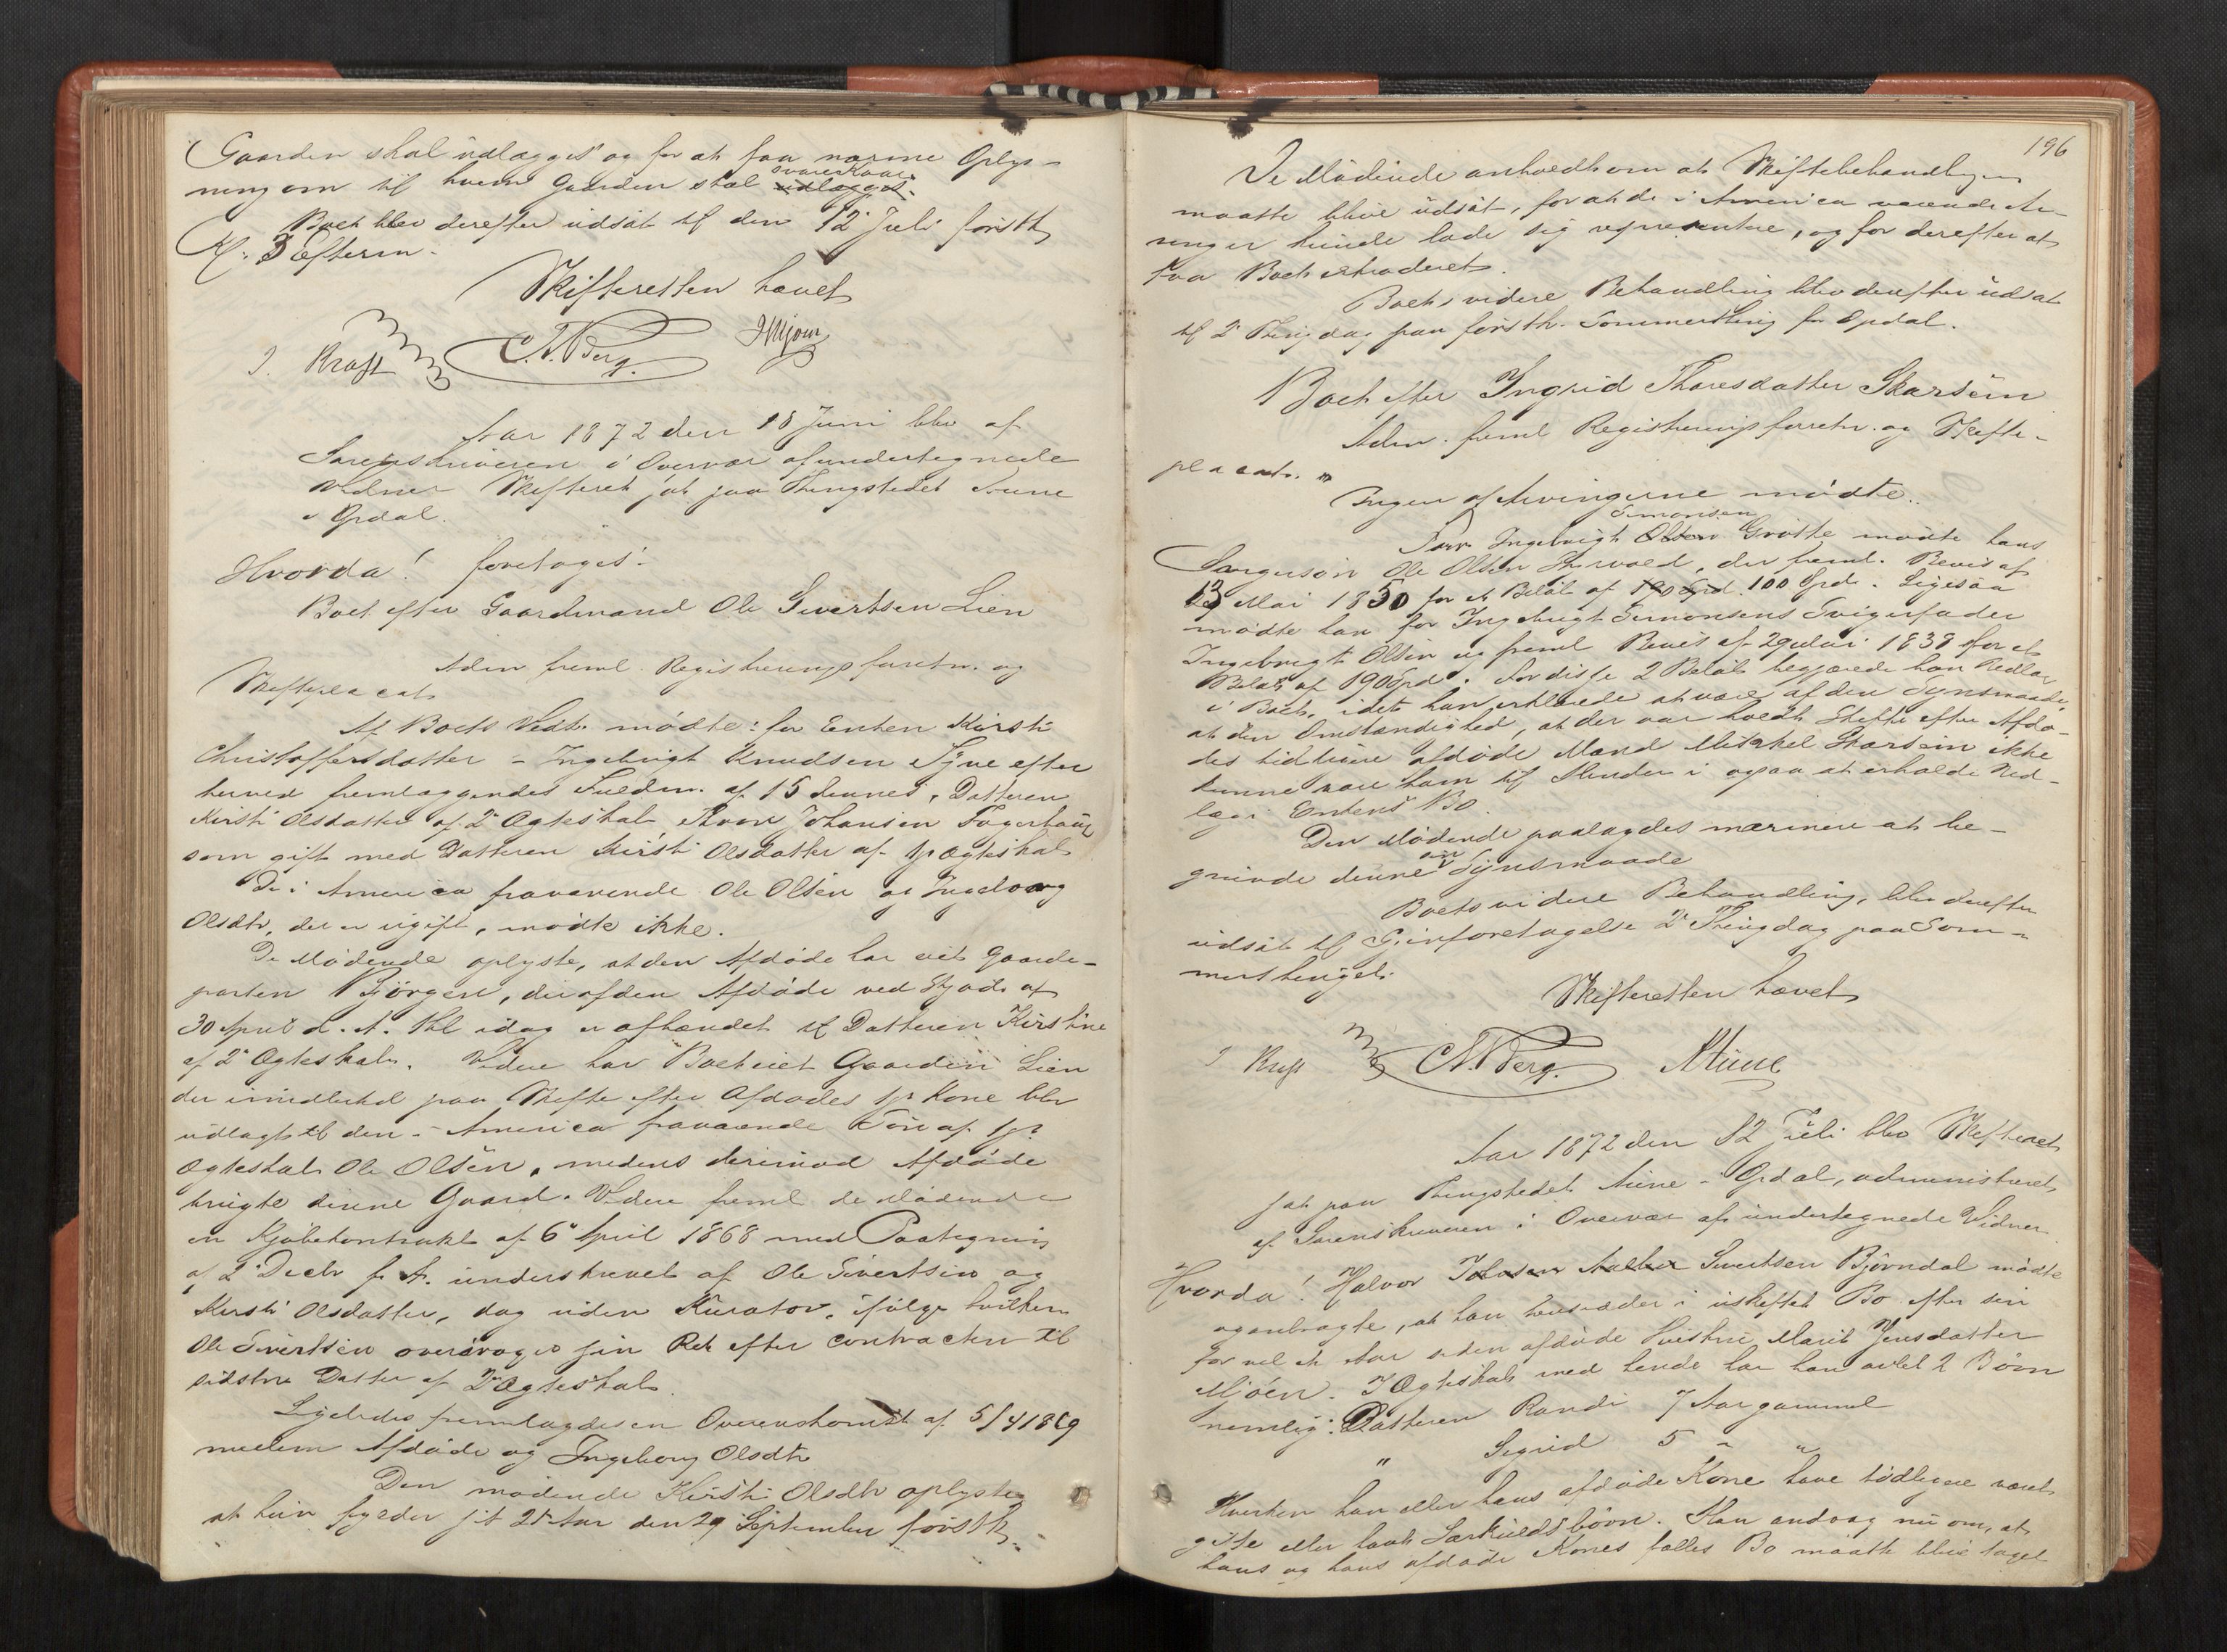 Gaarden skal udlægges og for at faa nærme Oplys-
ning om til hvem Gaarden skal udlægges
Boet blev derefter udsat til den 12 Juli førstk
Kl. 3 Efterm.
Skifteretten hævet
J. Kraft C.A. Berg
Aar 1872 den 18 Juni blev af
Sorenskriveren i Overvær af undertegnede
Vidner Skifteret sat paa Thingstedet Aune
i Opdal.
Hvorda! foretoges:
Boet efter Gaardmand Ole Sivertsen Lien
Adm. freml. Registreringsforretn. og
Skifteplacat
Af Boets Vedk. mødte: for Enken Kirsti
Christoffersdatter - Ingebrigt Knudsen efter
herved fremlæggendes Fuldm. af 15 dennes, Datteren
Kirsti Olsdatter af 2 Ægteskab, Johansen
som gift med Datteren Kirsti Olsdatter af 1ste Ægteskab
De i America fraværende Ole Olsen og Ingeborg
Olsdtr, der er ugift, mødte ikke.
De Mødende oplyste, at den Afdøde har eiet Gaard-
parten Bjørgen, der af den Afdøde ved Skjøde af
30 April d. A. thl idag er afhændet til Datteren Kirstine
af 2 Ægteskab. Videre har Boet eiet Gaarden Lien
der imidlertid paa Skifte efter Afdødes 1ste Kone blev
udlagt til den i America fraværende Søn af 1ste
Ægteskab Ole Olsen, medens derimod Afdøde
brugte denne Gaard. Videre freml de Mødende
en Kjøbekontrakt af 6 April 1868 med Paategning
af 2 Decbr f. A. underskrevet af Ole Sivertsen og
Kirsti Olsdatter, dog uden Kurator, ifølge hvilken
Ole Sivertsen overdrager sin Ret efter contracten til
sidstnv Datter af 2 Ægteskab.
Ligeledes fremlagdes en Overenskomst af 5/4 1869
mellem Afdøde og Ingeborg Olsdtr
Den mødende Kirsti Olsdtr oplyste
at hun fylder sit Aar den 29 September førstk.
196
De Mødende anholdt om at Skiftebehandlingen
maatte blive udsat, for at de i America værende Ar-
vinger kunde lade sig repræsentere, og for derefter at
faa Boet extraderet.
Boets videre Behandling blev derefter udsat
til 2 Thingdag paa førstk. Sommerthing for Opdal.
Boet efter Ingrid Thoresdatter Skarsem
Adm. freml Registreringsforretn. og Skifte-
placat.
Ingen af Arvingerne mødte.
For Ingebrigt Olsen Simonsen Grøtte mødte hans
Svigersøn Ole Olsen, der freml. Bevis af
13 Mai 1850 for et Beløb af 190 Spd. 100 Spd. Ligesaa
mødte han for Ingebrigt Simonsens Svigerfader
Ingebrigt Olsen og freml Bevis af 29 Mai 1838 for et
Beløb af 190 Spd. For disse 2 Beløb begjærede han Udlæg
i Boet, idet han erklærede at være af den Synsmaade,
at den Omstændighed, at der var holdt Skifte efter Afdø-
des tidligere afdøde Mand Mikkel Skarsem ikke
kunne være ham til Hinder i ogsaa at erholde Ud-
læg i Enkens Bo.
Den Mødende paalagdes nærmere at be-
grunde denne sin Synsmaade
Boets videre Behandling, blev derefter
udsat til Gjenforetagelse 2 Thingdag paa Som-
merthinget.
Skifteretten hævet
J Kraft C.A. Berg.
Aar 1872 den 12 Juli blev Skifteret
sat paa Thingstedet Aune i Opdal, administreret
af Sorenskriveren i Overvær af undertegnede Vidner
Hvorda! Halvor Sivertsen Bjørndal mødte
og anbragte, at han hensidder i uskiftet Bo efter sin
for vel et Aar siden afdøde Hustru Marit Jensdatter
Mjøen. I Ægteskab med hende har han avlet 2 Børn
nemlig: Datteren Randi 7 Aar gammel
" Sigrid 5 " "
Hverken han eller hans afdøde Kone have tidligere været
gifte eller havt Særkuldsbørn. Han androg nu om, at
hans og hans afdøde Kones fælles Bo maatte blive taget